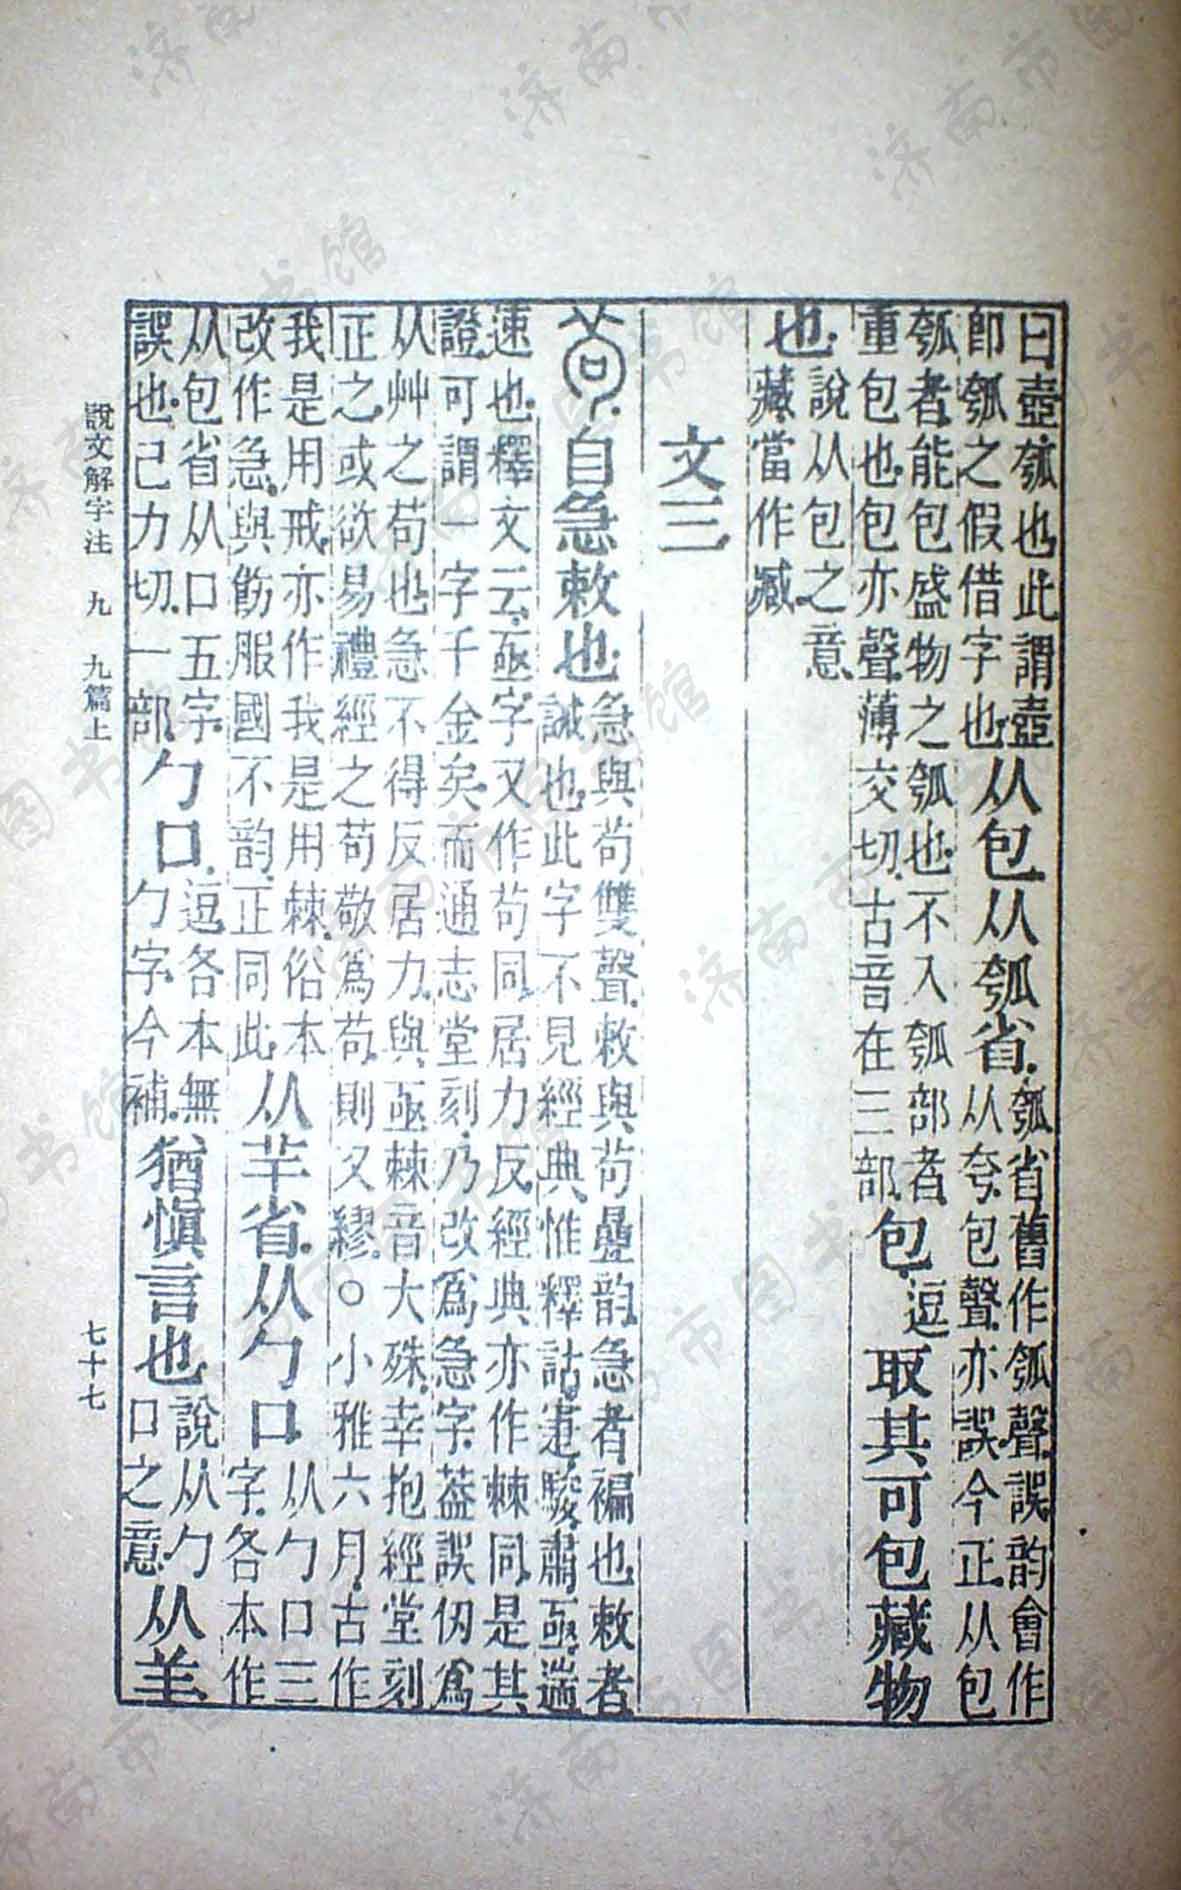 曰壺瓠也此謂壺
卽瓠之假借字也从包从瓠省瓠省舊作瓠聲誤韵會作
从夸包聲亦誤今正从包
瓠者能包盛物之瓠也不入瓠部者
重包也包亦聲薄交切古音在三部包逗取其可包藏物
也說从包之意
藏當作臧
文三
自急敕也急與茍雙聲敕與茍疊韵急者褊也敕者
誡也此字不見經典惟釋詁寁駿肅亟遄
速也釋文云亟字又作茍同居力反經典亦作棘同是其
證可謂一字千金矣而通志堂刻乃改爲急字葢誤仞爲
从艸之苟也急不得反居力與亟棘音大殊幸抱經堂刻
正之或欲易禮經之苟敬爲茍則又繆○小雅六月古作
我是用戒亦作我是用棘俗本
改作急與飭服國不韵正同此从羊省从勹口从勹口三
字各本作
从包省从口五字
誤也己力切一部勹口逗各本無
勹字今補猶愼言也說从勹
口之意从羊
說文解字注 九 九篇上
七十七
济南市图书馆